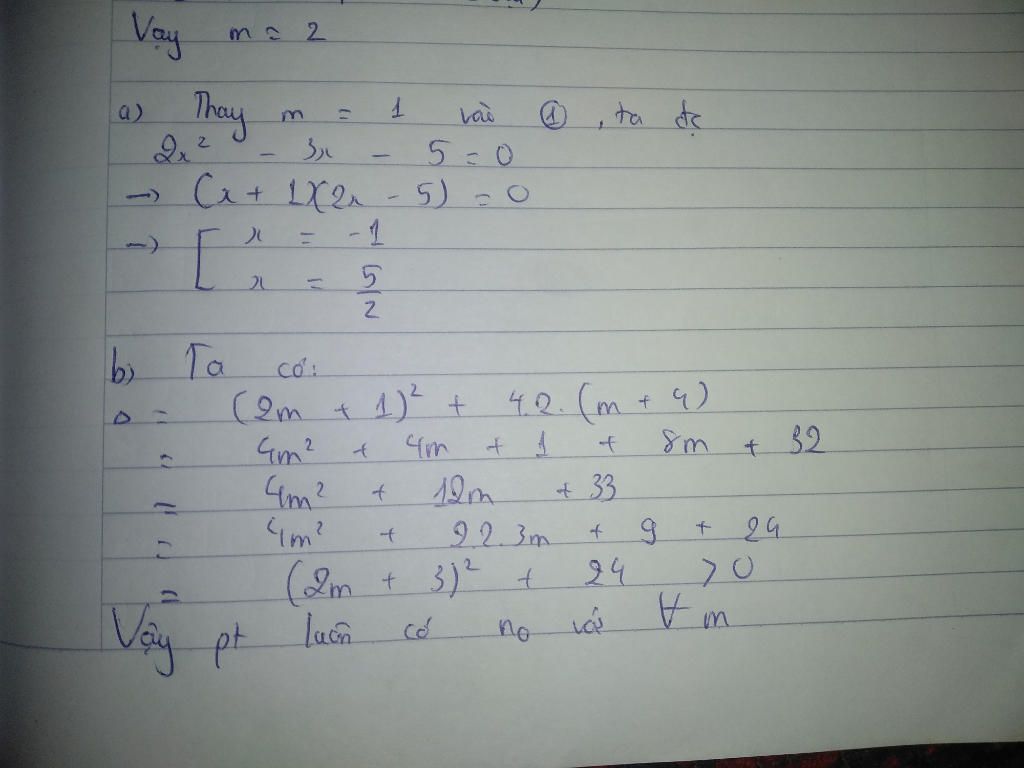 Vạy m = 2
a) Thay m = 1 vào ①, ta đc
2x² - 3x - 5 = 0
→ (x + 1)(2x - 5) = 0
→ [ x = -1
x = 5/2
b) Ta có:
Δ = (2m + 1)² + 4.2.(m + 4)
= 4m² + 4m + 1 + 8m + 32
= 4m² + 12m + 33
= 4m² + 2.2.3m + 9 + 24
= (2m + 3)² + 24 > 0
Vậy pt luôn có no với ∀ m